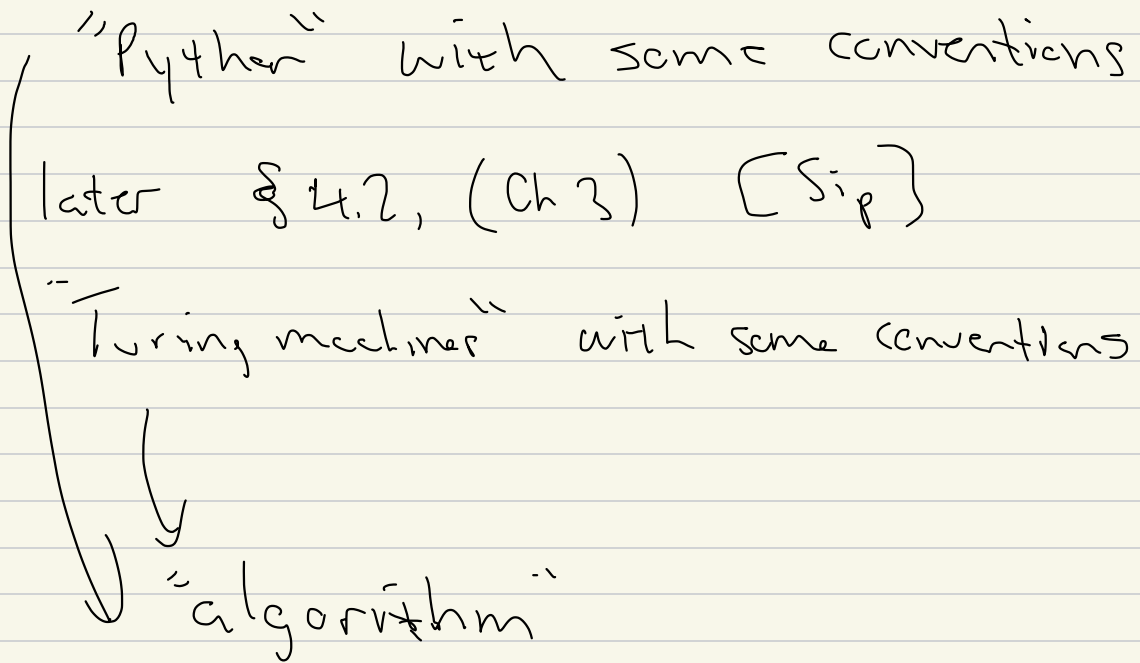 "Python" with some conventions
later § 4.2, (Ch 3) [Sip]
"Turing machines" with some conventions
"algorithm"